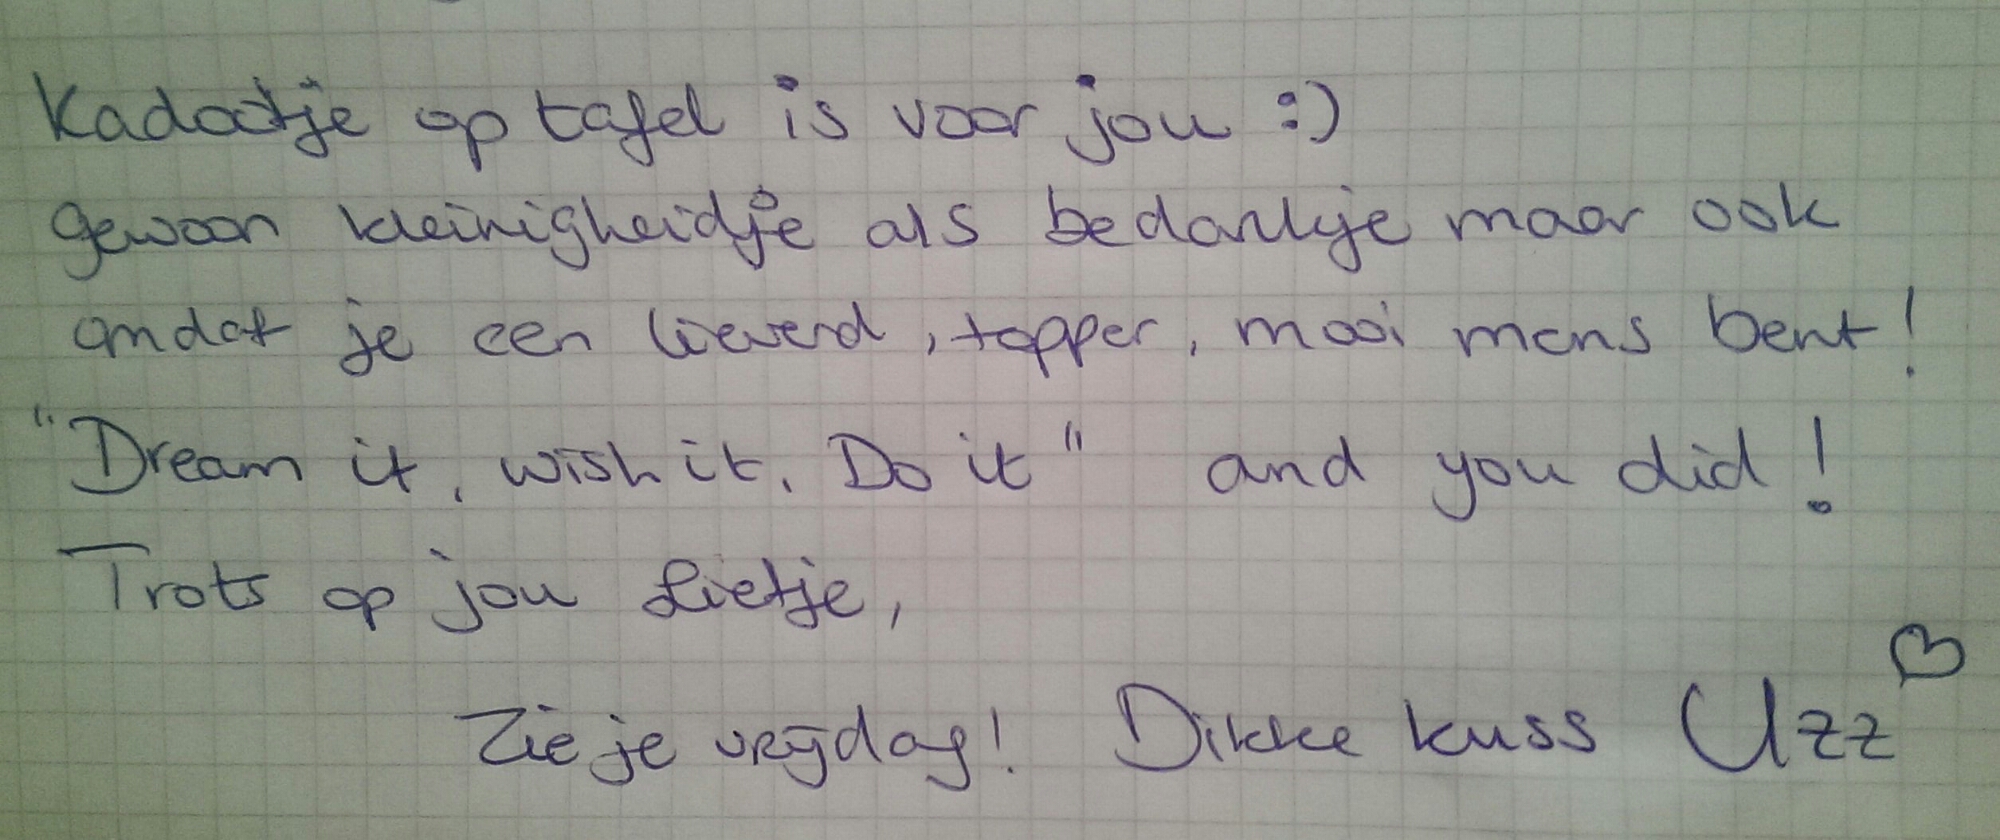 Kadootje op tafel is voor jou :)
gewoon kleinigheidje als bedankje maar ook
omdat je een lieverd, topper, mooi mens bent!
"Dream it, wish it, Do it" and you did!
Trots op jou Lietje,
Zie je vrijdag! Dikke kuss Uzz ♡